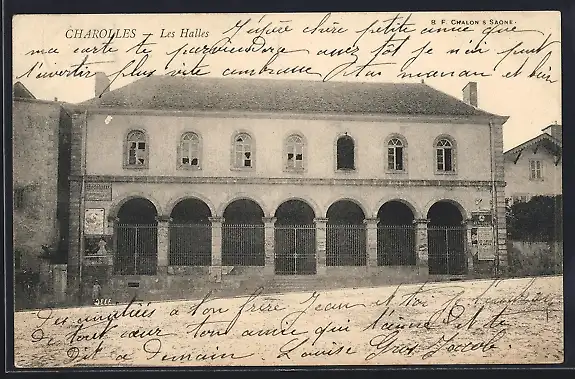 B. F. CHALON S SAONE
CHAROLLES _ Les Halles
J'espère chère petite amie que
ma carte te parviendra assez tôt je n'ai pu
t'avertir plus vite embrasse ta maman et bien
Des amitiés à ton frère Jean et toi je
de tout cœur ton amie qui t'aime et te
Dit à demain Louise